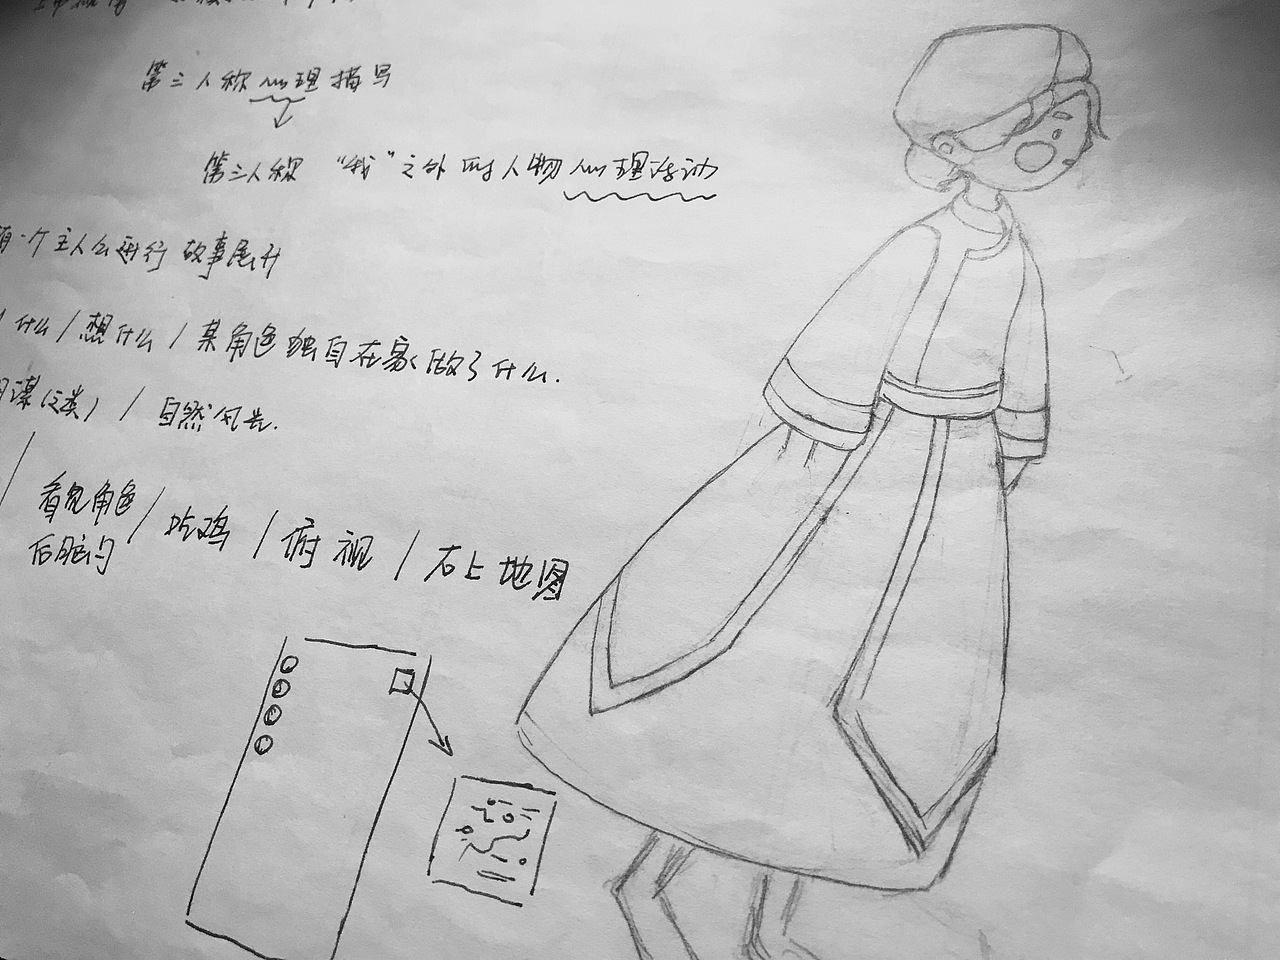 第三人称心理描写
第三人称 "我"之外的人物心理活动
有一个主人公进行 故事展开
什么/想什么/某角色独自在家做了什么.
谋(泛类) / 自然风光.
看见角色/吃鸡/俯视/右上地图
后脑勺